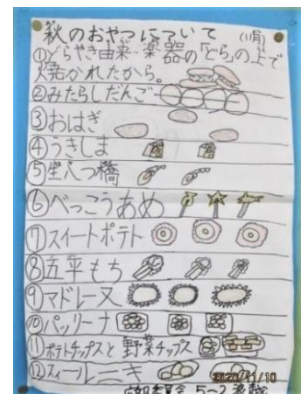 秋のおやつについて (11月)
①どらやき由来・楽器の「どら」の上で
焼かれたから。
②みたらしだんご
③おはぎ
④うきしま
⑤生八つ橋
⑥べっこうあめ
⑦スイートポテト
⑧五平もち
⑨マドレーヌ
⑩パッリーナ
⑪ポテトチップスと野菜チップス
⑫スィートルーキ
2020/11/10
5-2